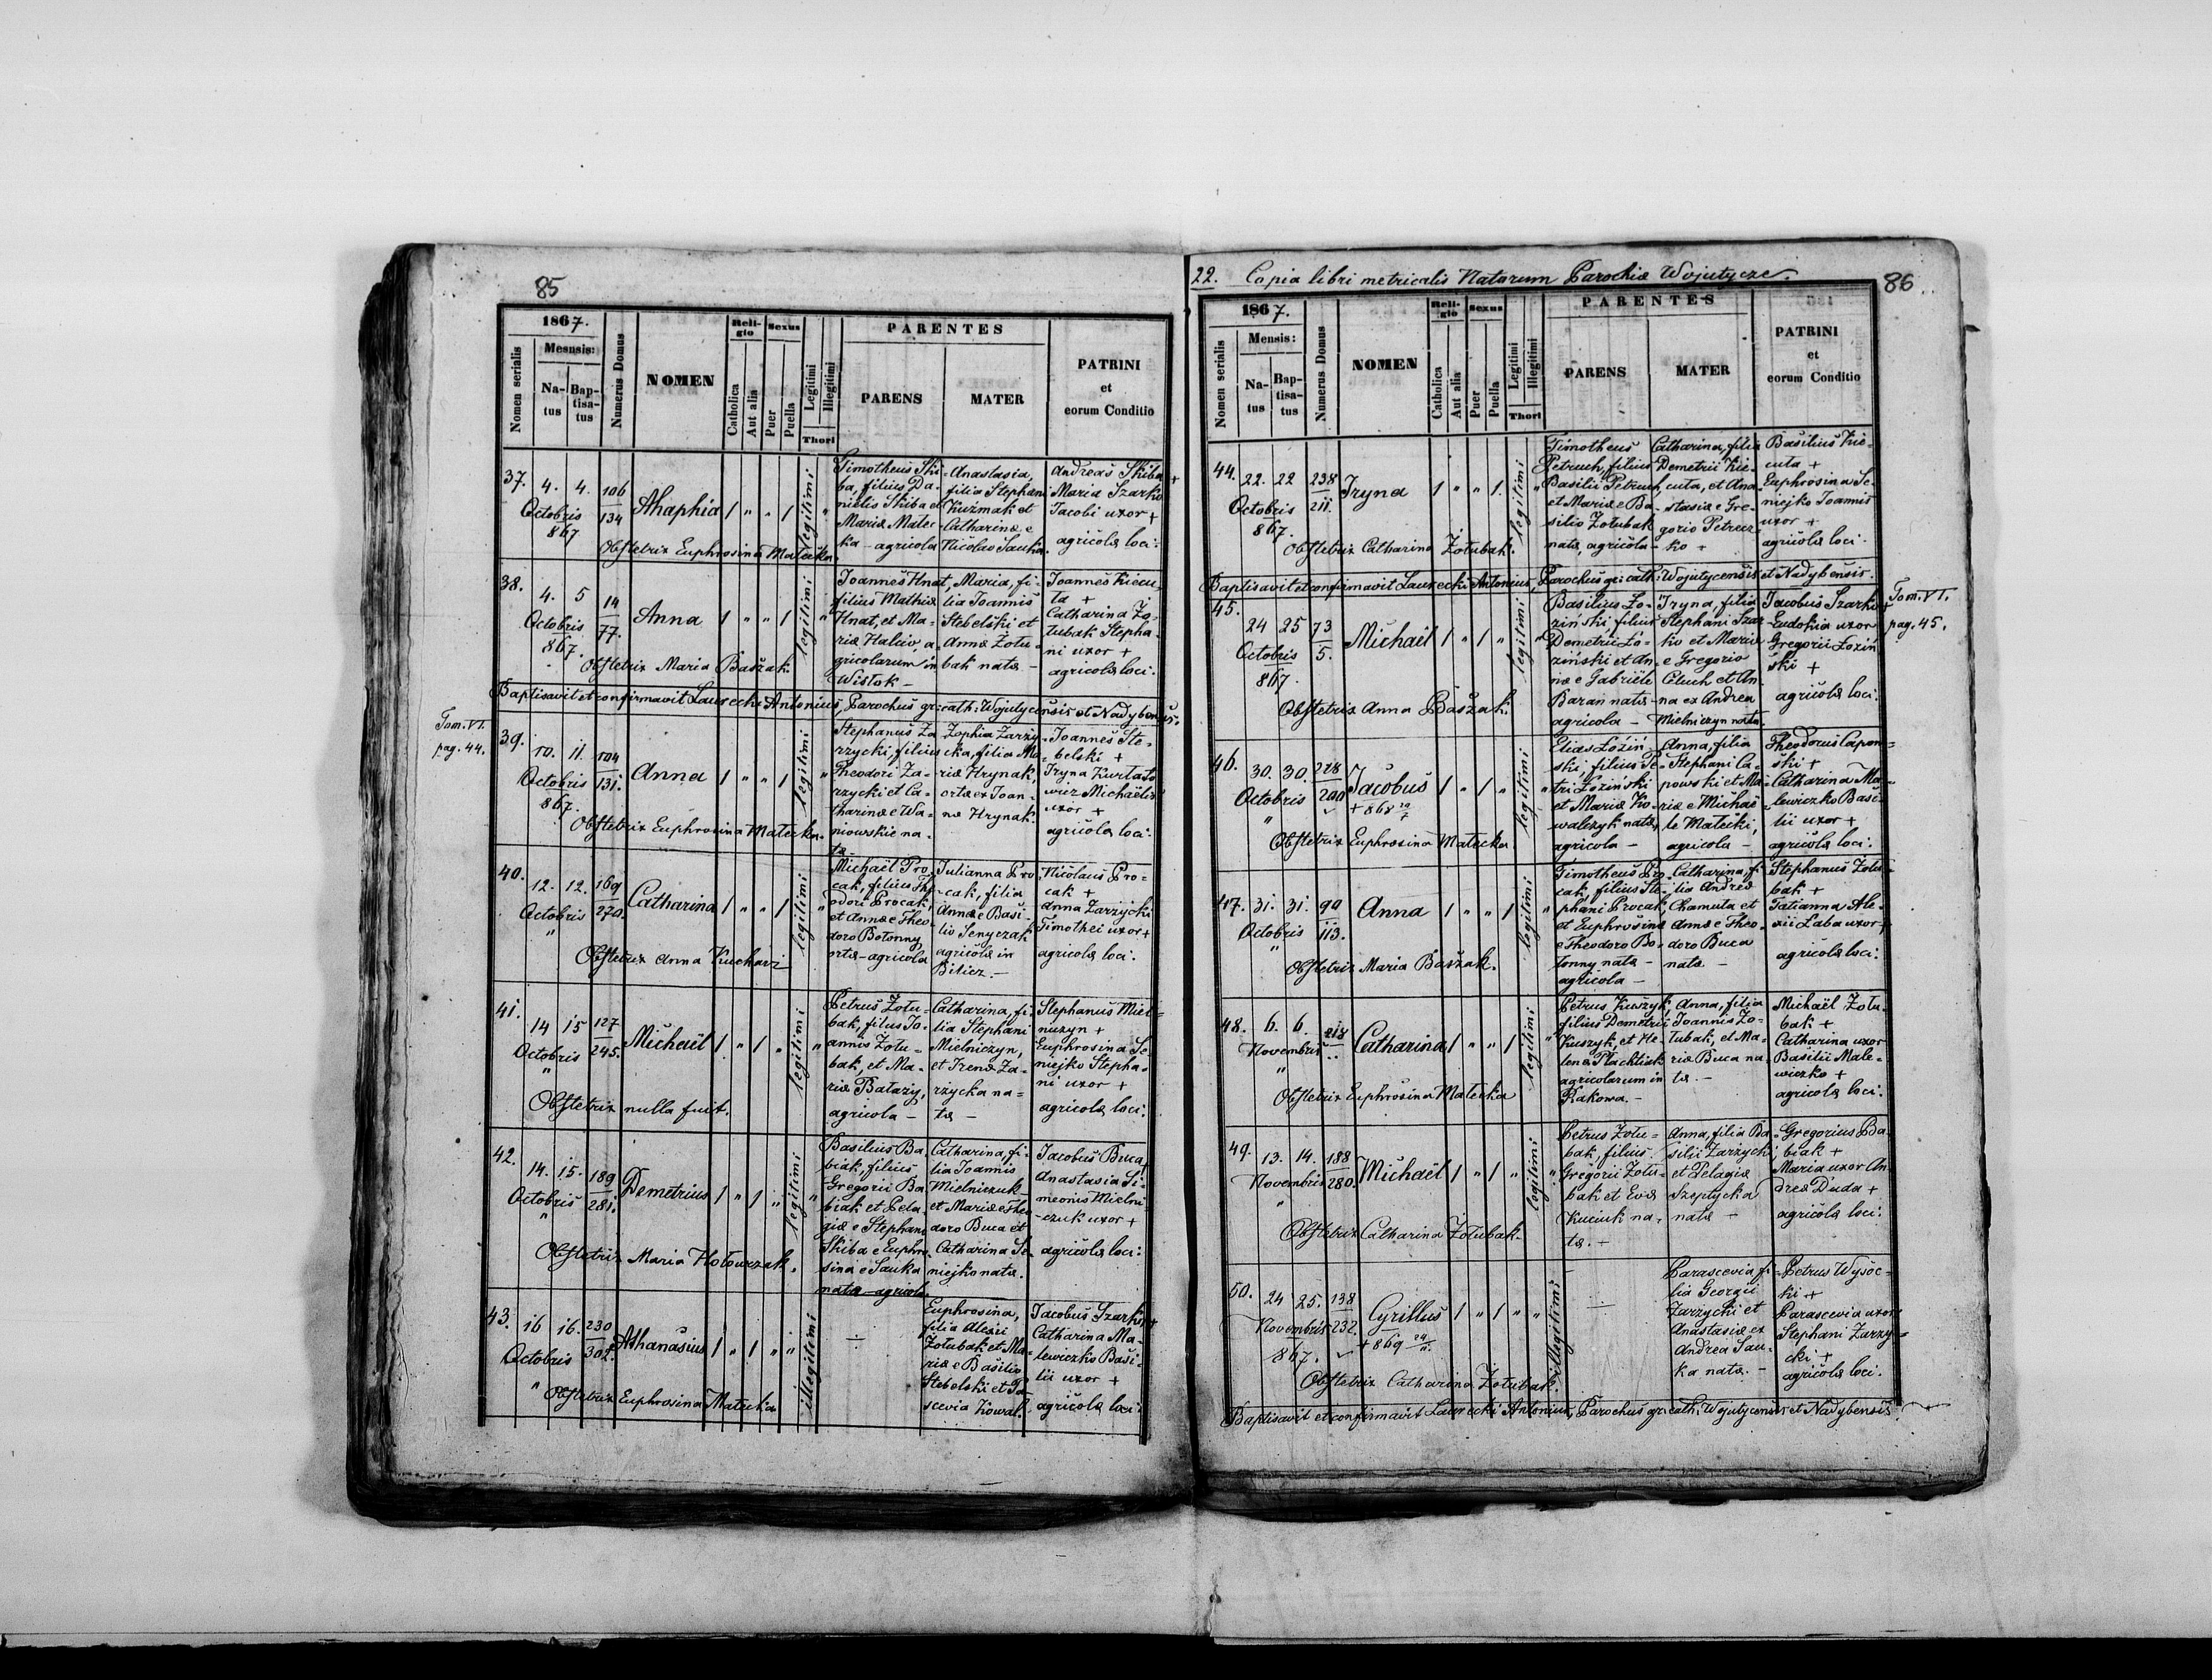 85
1867.
Mesnsis:
Nomen serialis
Natus
Baptisatus
Numerus Domus
NOMEN
Religio
Catholica
Aut alia
Sexus
Puer
Puella
Legitimi
Illegitimi
Thori
PARENTES
PARENS
MATER
PATRINI
et
eorum Conditio
37. 4. 4. 106
134
Octobris
867
Ahaphia 1 " " 1 legitimi "
Timotheus Ski-
ba, filius Da-
nielis Skiba et
Mariæ Matec-
ka - agricola
Anastasia,
filia Stephani
Kuzmak et
Catharinæ e
Nicolao Sauka.
Andreas Skiba +
Maria Szarko
Jacobi uxor +
agricolæ loci.
Obstetrix Euphrosina Matecka.
38. 4. 5 14
77.
Octobris
867.
Anna 1 " " 1 legitimi "
Joannes Hnat,
filius Mathiæ
Hnat, et Ma-
riæ Haliw, a-
gricolarum in
Wistok -
Maria, fi-
lia Joannis
Stebelski et
Annæ Żołu-
bak nata -
Joannes Kicu-
ta +
Catharina Żo-
łubak Stepha-
ni uxor +
agricolæ loci.
Obstetrix Maria Baszak.
Baptisavit et confirmavit Laurecki Antonius, Parochus gr: cath: Wojutycensis et Nadybensis.
Tom. VI.
pag. 44.
39. 10. 11. 104
131.
Octobris
867.
Anna 1 " " 1 legitimi "
Stephanus Za-
rzycki, filius
Theodori Za-
rzycki et Ca-
tharinæ e Wa-
niowskie na-
tæ -
Zophia Zarzy-
cka, filia Ma-
riæ Hrynak,
ortæ ex Joan-
ne Hrynak.
Joannes Ste-
belski +
Iryna Kurtasie
wicz Michaëlis
uxor +
agricolæ loci.
Obstetrix Euphrosina Matecka.
40. 12. 12. 169
270.
Octobris
"
Catharina 1 " " 1 legitimi "
Michaël Pro-
cak, filius The-
odori Procak,
et Annæ e Theo-
doro Botonny
ortæ - agricola
Julianna Pro-
cak, filia
Annæ e Basi-
lio Senyczak
agricolæ in
Bilicz. -
Nicolaus Pro-
cak +
Anna Zarzycki
Timothei uxor +
agricolæ loci.
Obstetrix Anna Kucharz
41. 14 15 127
245.
Octobris
"
Michaël 1 " 1 " legitimi "
Petrus Żołu-
bak, filius Jo-
annis Żołu-
bak, et Ma-
riæ Batazy,
agricola -
Catharina, fi-
lia Stephani
Mielniczyn,
et Irenæ Za-
rzycka na-
tæ -
Stephanus Miel-
niczyn +
Euphrosina Se-
niejko Stepha-
ni uxor +
agricolæ loci.
Obstetrix nulla fuit.
42. 14. 15. 189
281.
Octobris
"
Demetrius 1 " 1 " legitimi "
Basilius Ba-
biak, filius
Gregorii Ba-
biak et Pela-
giæ e Stephano
Skiba e Euphro-
sina e Sauka
natæ - agricola
Catharina, fi-
lia Joannis
Mielniczuk
et Mariæ e Theo-
doro Buca et
Catharina Se-
niejko natæ.
Jacobus Buca +
Anastasia Si-
meonis Mielni
-czuk uxor +
agricolæ loci.
Obstetrix Maria Hołowczak.
43. 16 16. 230
302.
Octobris
"
Athanasius 1 " 1 " " illegitimi
÷
Euphrosina,
filia Alexii
Żołubak et Ma-
riæ e Basilio
Stebelski et Pa-
scevia Kowal.
Jacobus Szarko +
Catharina Ma-
lewiczko Basi-
lii uxor +
agricolæ loci.
Obstetrix Euphrosina Matecka
22. Copia libri metricalis Natorum Parochiæ Wojutycze.
86
1867.
Mensis:
Nomen serialis
Natus
Baptisatus
Numerus Domus
NOMEN
Religio
Catholica
Aut alia
Sexus
Puer
Puella
Legitimi
Illegitimi
Thori
PARENTES
PARENS
MATER
PATRINI
et
eorum Conditio
44. 22. 22 238
211.
Octobris
867.
Iryna 1 " " 1. legitimi "
Timotheus
Petruch, filius
Basilii Petruch,
et Mariæ e Ba-
silio Żołubak
natæ, agricola -
Catharina, filia
Demetrii Kic-
cuta, et Ana-
stasiæ e Gre-
gorio Petrecz
ko +
Basilius Kic-
cuta +
Euphrosina Se-
niejko Joannis
uxor +
agricolæ loci.
Obstetrix Catharina Żołubak.
Baptisavit et confirmavit Laurecki Antonius, Parochus gr: cath: Wojutycensis et Nadybensis.
45. 24 25 73
5.
Octobris
867.
Michaël 1 " 1 " legitimi "
Basilius Ło-
ziński filius
Demetrii Ło-
ziński et An-
næ e Gabriële
Baran natæ
agricola -
Iryna, filia
Stephani Szar-
ko et Mariæ
e Gregorio
Celuch et An-
na ex Andrea
Mielniczyn nata.
Jacobus Szarko +
Eudokia uxor
Gregorii Łoziń
ski +
agricolæ loci.
Tom. VI.
pag. 45.
Obstetrix Anna Baszak.
46. 30. 30. 228
200
Octobris
"
Jacobus 1 " 1 " legitimi "
+ 868
Elias Łoziń-
ski, filius Pe-
tri Łoziński
et Mariæ Ko-
walczyk natæ,
agricola -
Anna, filia
Stephani Ca-
powski et Ma-
riæ e Michaë-
le Matecki,
agricola -
Theodorus Capow-
ski +
Catharina Ma-
lewiczko Basi-
lii uxor +
agricolæ loci.
Obstetrix Euphrosina Matecka
47. 31. 31. 90
113.
Octobris
"
Anna 1 " " 1 legitimi "
Timotheus Pro-
cak, filius Ste-
phani Procak,
et Euphrosinæ
e Theodoro Bo-
tonny natæ -
agricola -
Catharina, fi-
lia Andreæ
Chamuta et
Annæ e Theo-
doro Buca
natæ -
Stephanus Żołu-
bak +
Tatianna Ale-
xii Łaba uxor +
agricolæ loci.
Obstetrix Maria Baszak.
48. 6. 6. 218
Novembris
"
Catharina 1 " " 1 legitimi "
Petrus Kuszyk,
filius Demetrii
Kuszyk, et He-
lenæ Płachtiak
agricolarum in
Rakowa. -
Anna, filia
Joannis Żo-
łubak, et Ma-
riæ Buca na-
tæ. -
Michaël Żołu-
bak +
Catharina uxor
Basilii Male-
wiczko +
agricolæ loci.
Obstetrix Euphrosina Matecka
49. 13. 14. 188
280.
Novembris
"
Michaël 1 " 1 " legitimi "
Petrus Żołu-
bak, filius
Gregorii Żołu-
bak et Evæ
Kuciuk na-
tæ. -
Anna, filia Ba-
silii Zarzycki
et Pelagiæ
Szeptycka
natæ -
Gregorius Ba-
biak +
Maria uxor An-
dreæ Duda +
agricolæ loci.
Obstetrix Catharina Żołubak.
50. 24 25. 138
232.
Novembris
867.
Cyrillus 1 " 1 " " illegitimi
+ 869 24/11.
÷
Parascevia fi-
lia Georgii
Zarzycki et
Anastasiæ ex
Andrea Sau-
ka nata. -
Petrus Wysoc-
ki +
Parascevia uxor
Stephani Zarzy-
cki +
agricolæ loci.
Obstetrix Catharina Żołubak.
Baptisavit et confirmavit Laurecki Antonius, Parochus gr: cath: Wojutycensis et Nadybensis.